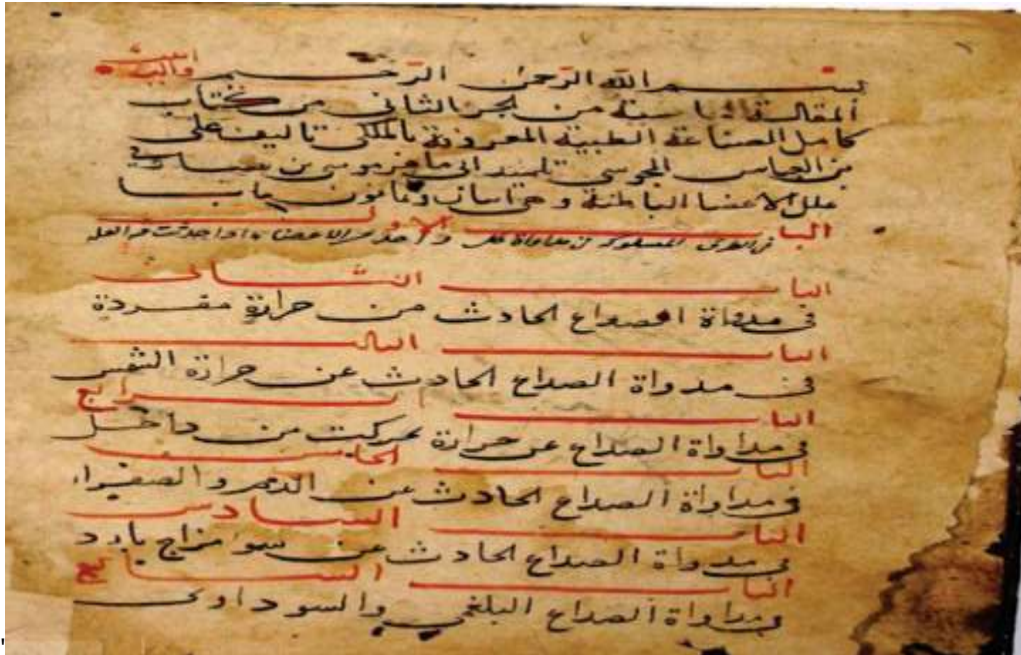 بسم الله الرحمن الرحيم
المقالة من الجز الثانى من كتاب
كامل الصناعة الطبية المعروفة بالملكى تاليف على
بن العباس المجوسى تلميذ ابى ماهر موسى بن سيار فى
علل الاعضا الباطنة وهى اثنان وثمانون بابا
الباب الاول
فى الطرق المسلوكة فى مداواة علل
الباب الثانى
فى مدواة الصداع الحادث من حرارة مفردة
الباب الثالث
فى مدواة الصداع الحادث عن حرارة الشمس
الباب الرابع
فى مداواة الصداع عن حرارة تحركت من داخل
الباب الخامس
فى مداواة الصداع الحادث عن الدم والصفراء
الباب السادس
فى مدواة الصداع الحادث عن سو مزاج بارد
الباب السابع
فى مداواة الصداع البلغمى والسوداوى